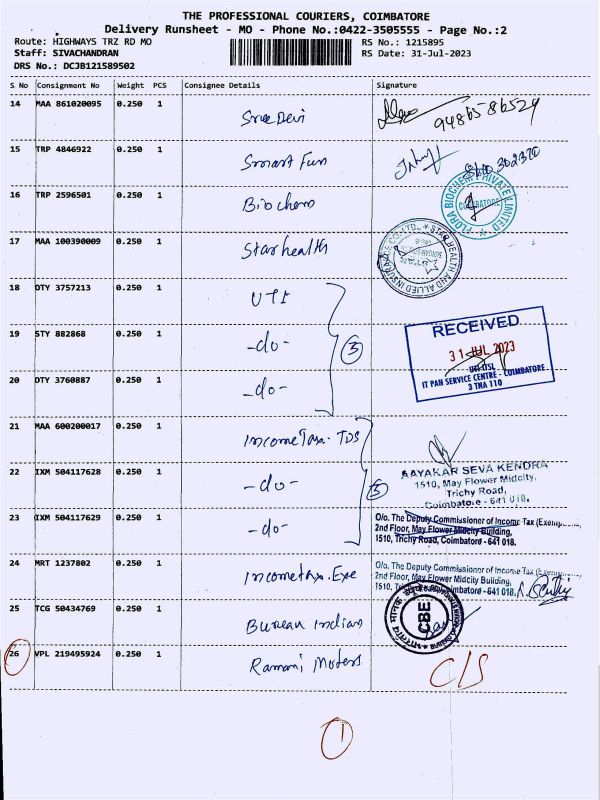 THE PROFESSIONAL COURIERS, COIMBATORE
Delivery Runsheet - MO - Phone No.:0422-3505555 - Page No.:2
Route: HIGHWAYS TRZ RD MO
RS No.: 1215895
Staff: SIVACHANDRAN
RS Date: 31-Jul-2023
DRS No.: DCJB121589502
S No Consignment No Weight PCS Consignee Details Signature
14 MAA 861020095 0.250 1 Sree Devi 9486586524
15 TRP 4846922 0.250 1 Smart Fun
16 TRP 2596501 0.250 1 Biochem
FLORA BIOCHEM PRIVATE LIMITED
COIMBATORE
17 MAA 100390009 0.250 1 Star health
STAR HEALTH AND ALLIED INSURANCE CO. LTD.
18 DTY 3757213 0.250 1 UTI
19 STY 882868 0.250 1 -do- 3
RECEIVED
31 JUL 2023
UTI ITSL
IT PAN SERVICE CENTRE - COIMBATORE
3 TNA 110
20 DTY 3760887 0.250 1 -do-
21 MAA 600200017 0.250 1 Income Tax. TDS
22 IXM 504117628 0.250 1 -do-
AAYAKAR SEVA KENDRA
1510, May Flower Midcity,
Trichy Road,
Coimbatore - 641 018.
23 IXM 504117629 0.250 1 -do-
O/o. The Deputy Commissioner of Income Tax
2nd Floor, May Flower Midcity Building,
1510, Trichy Road, Coimbatore - 641 018.
24 MRT 1237802 0.250 1 Incometax. Exe
O/o. The Deputy Commissioner of Income Tax
2nd Floor, May Flower Midcity Building,
1510, Coimbatore - 641 018.
25 TCG 50434769 0.250 1 Bureau Indian
CBE
26 VPL 219495924 0.250 1 Ramani Motors C/S
1